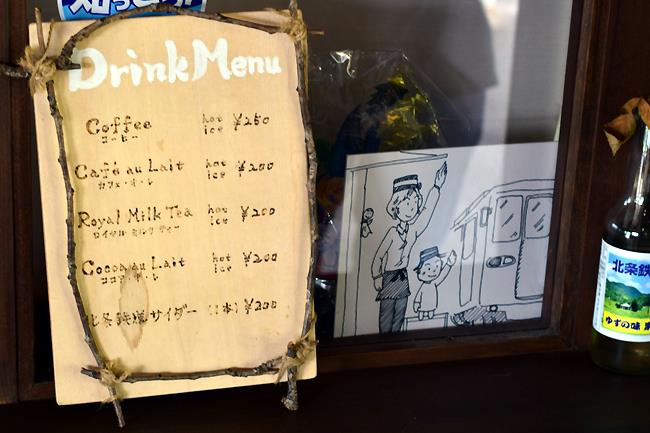 Drink Menu
Coffee hot ice ¥250
コーヒー
Café au Lait hot ice ¥200
カフェ・オ・レ
Royal Milk Tea hot ice ¥200
ロイヤル ミルク ティー
Cocoa au Lait hot ice ¥200
ココア・オ・レ
北条鉄道サイダー (1本) ¥200
北条鉄
ゆずの味